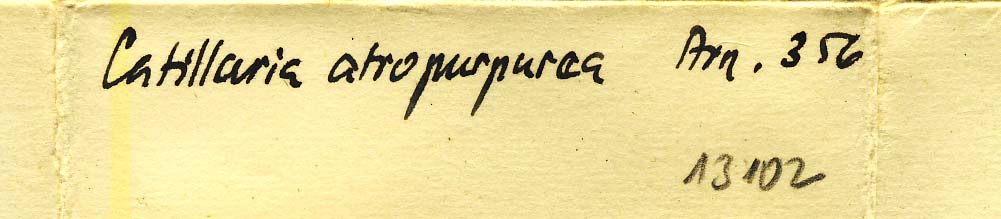 Catillaria atropurpurea Arn. 356
13102